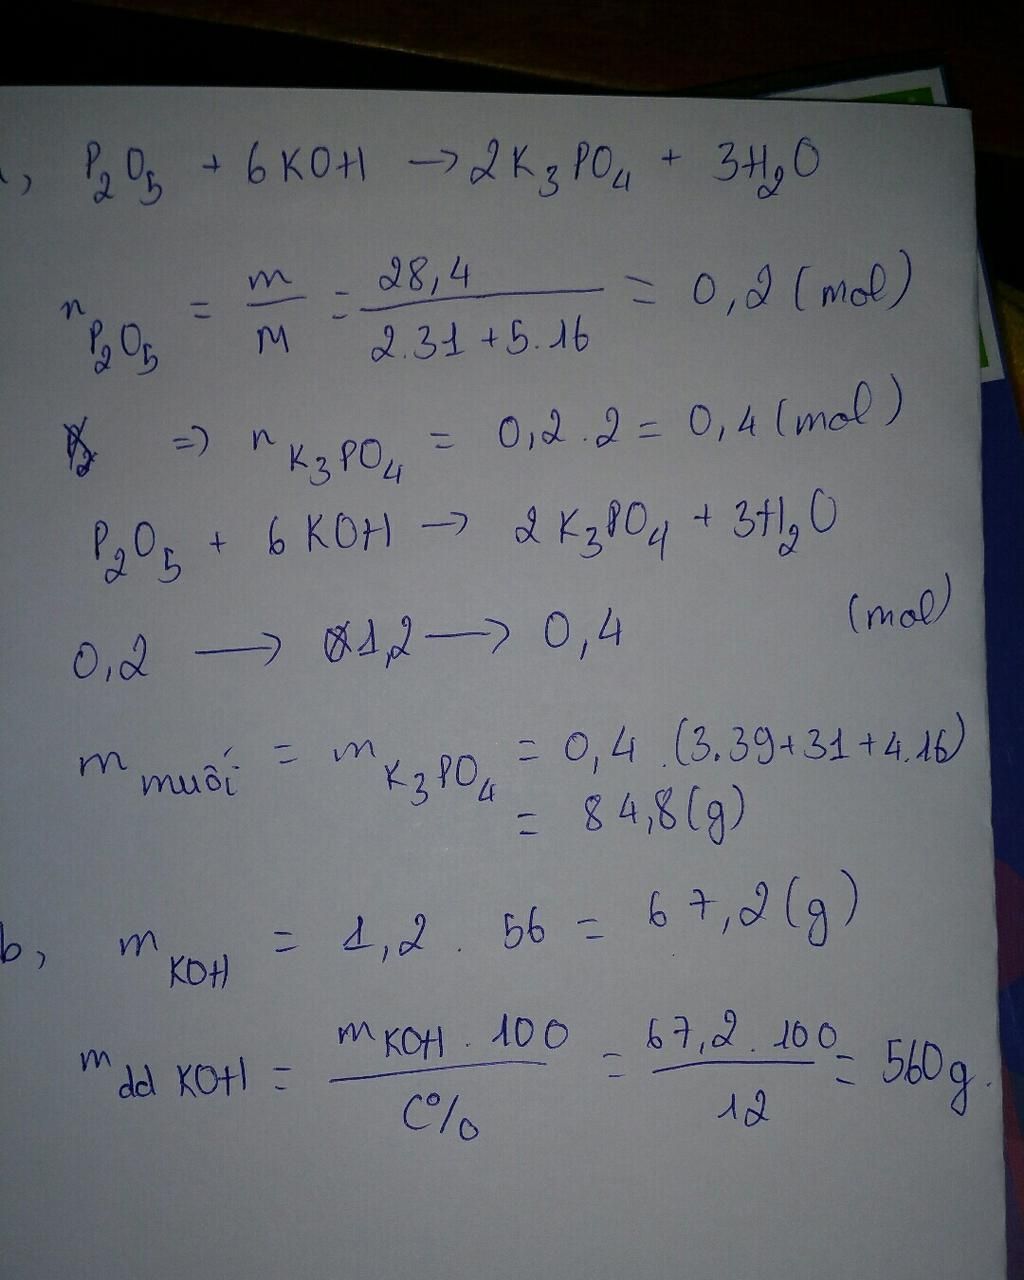 a, P2O5 + 6KOH → 2K3PO4 + 3H2O
nP2O5 = m/M = 28,4/(2.31 + 5.16) = 0,2 (mol)
=) nK3PO4 = 0,2 . 2 = 0,4 (mol)
P2O5 + 6 KOH → 2 K3PO4 + 3H2O
0,2 → 1,2 → 0,4 (mol)
mmuối = mK3PO4 = 0,4 . (3.39+31+4.16)
= 84,8 (g)
b, mKOH = 1,2 . 56 = 67,2 (g)
mdd KOH = mKOH . 100/C% = 67,2 . 100/12 = 560g.